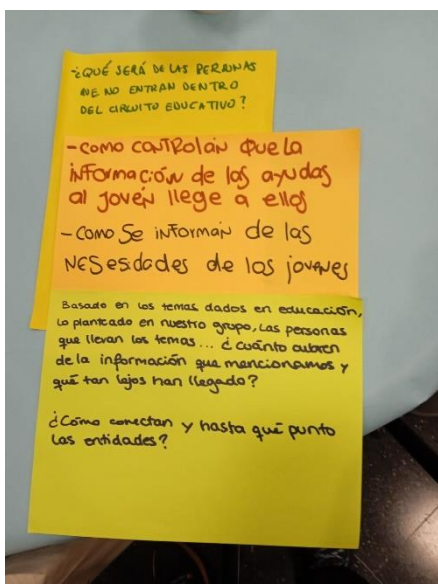 -¿QUÉ SERÁ DE LAS PERSONAS
QUE NO ENTRAN DENTRO
DEL CIRCUITO EDUCATIVO?
-COMO CONTROLAN QUE LA
INFORMACIÓN de las ayudas
al jovén llege a ellos
-COMO Se INFORMAN de las
NESesidades de los jovenes
Basado en los temas dados en educación,
lo planteado en nuestro grupo, las personas
que llevan los temas... ¿ cuánto cubren
de la información que mencionamos y
qué tan lejos han llegado?
¿Cómo conectan y hasta qué punto
las entidades?